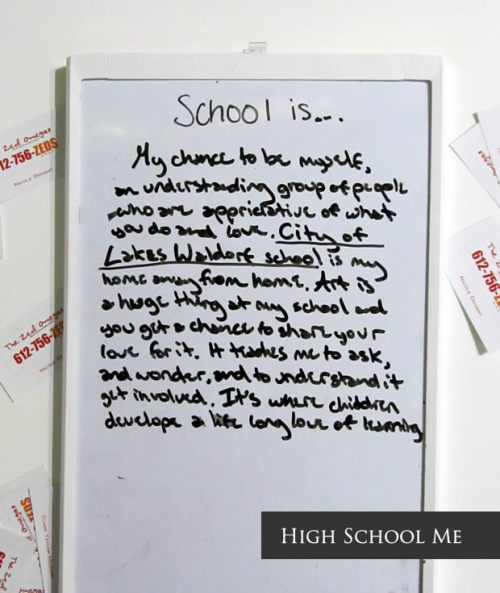 School is...
My chance to be myself,
an understanding group of people
who are appriciative of what
you do and love. City of
Lakes Waldorf school is my
home away from home. Art is
a huge thing at my school and
you get a chance to share your
love for it. It teaches me to ask,
and wonder, and to understand it
get involved. It's where children
develope a life long love of learning
The Zed Omegas
612-756-ZEDS
The Zed Omegas
612-756-ZEDS
612-756-
HIGH SCHOOL ME